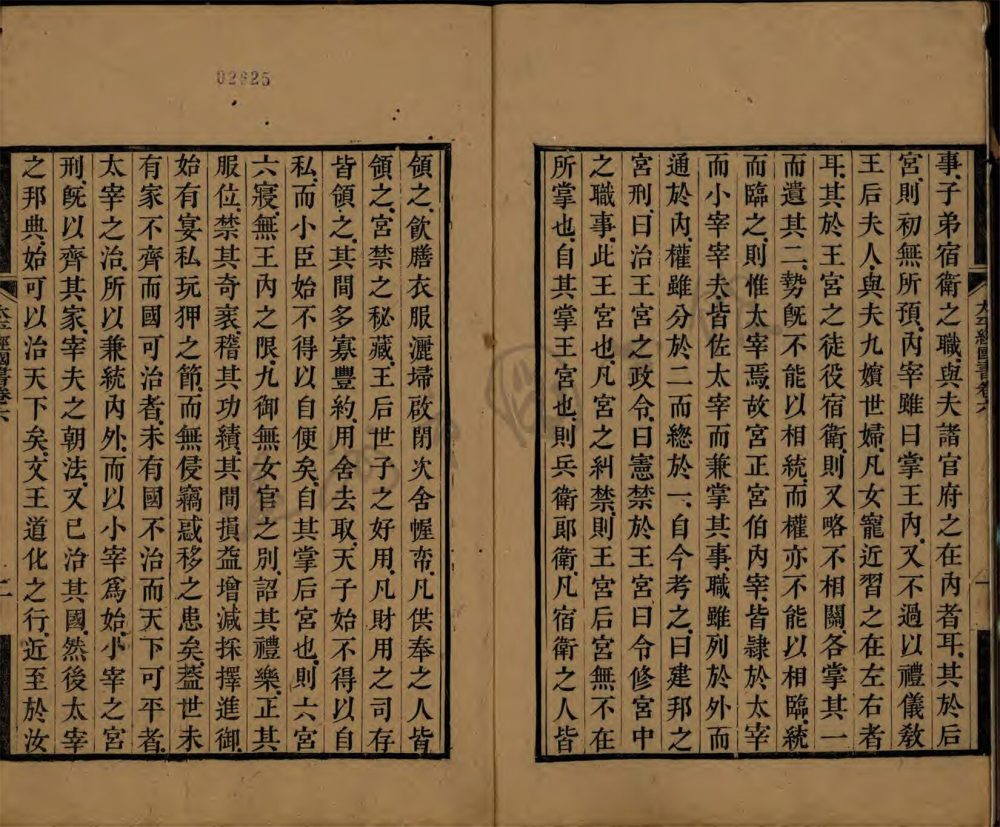 事子弟宿衛之職與夫諸官府之在內者耳其於后
宮則初無所預內宰雖曰掌王內又不過以禮儀敎
王后夫人與夫九嬪世婦凡女寵近習之在左右者
耳其於王宮之徒役宿衛則又略不相關各掌其一
而遺其二勢旣不能以相統而權亦不能以相臨統
而臨之則惟太宰焉故宮正宮伯內宰皆隸於太宰
而小宰宰夫皆佐太宰而兼掌其事職雖列於外而
通於內權雖分於二而緫於一自今考之曰建邦之
宮刑曰治王宮之政令曰憲禁於王宮曰令修宮中
之職事此王宮也凡宮之糾禁則王宮后宮無不在
所掌也自其掌王宮也則兵衛郎衛凡宿衛之人皆
太平經國書卷六
一
02625
領之飮膳衣服灑埽啟閉次舍幄帟凡供奉之人皆
領之宮禁之秘藏王后世子之好用凡財用之司存
皆領之其間多寡豐約用舍去取天子始不得以自
私而小臣始不得以自便矣自其掌后宮也則六宮
六寢無王內之限九御無女官之別詔其禮樂正其
服位禁其奇衺稽其功績其間損益增減採擇進御
始有宴私玩狎之節而無侵竊惑移之患矣蓋世未
有家不齊而國可治者未有國不治而天下可平者
太宰之治所以兼統內外而以小宰爲始小宰之宮
刑旣以齊其家宰夫之朝法又已治其國然後太宰
之邦典始可以治天下矣文王道化之行近至於汝
太平經國書卷六
二